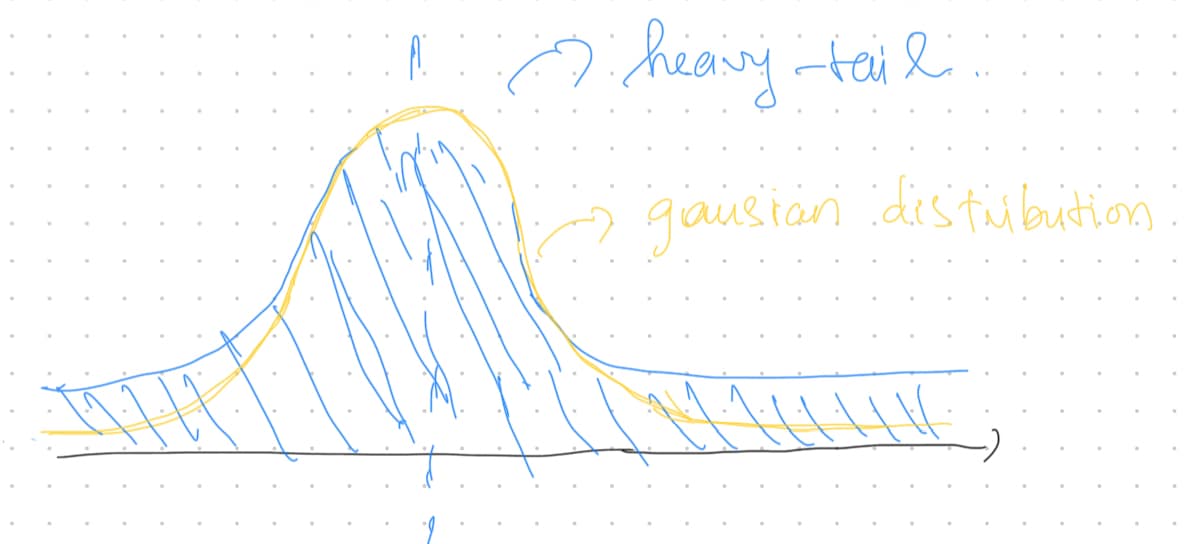 heavy-tail.
gausian distribution